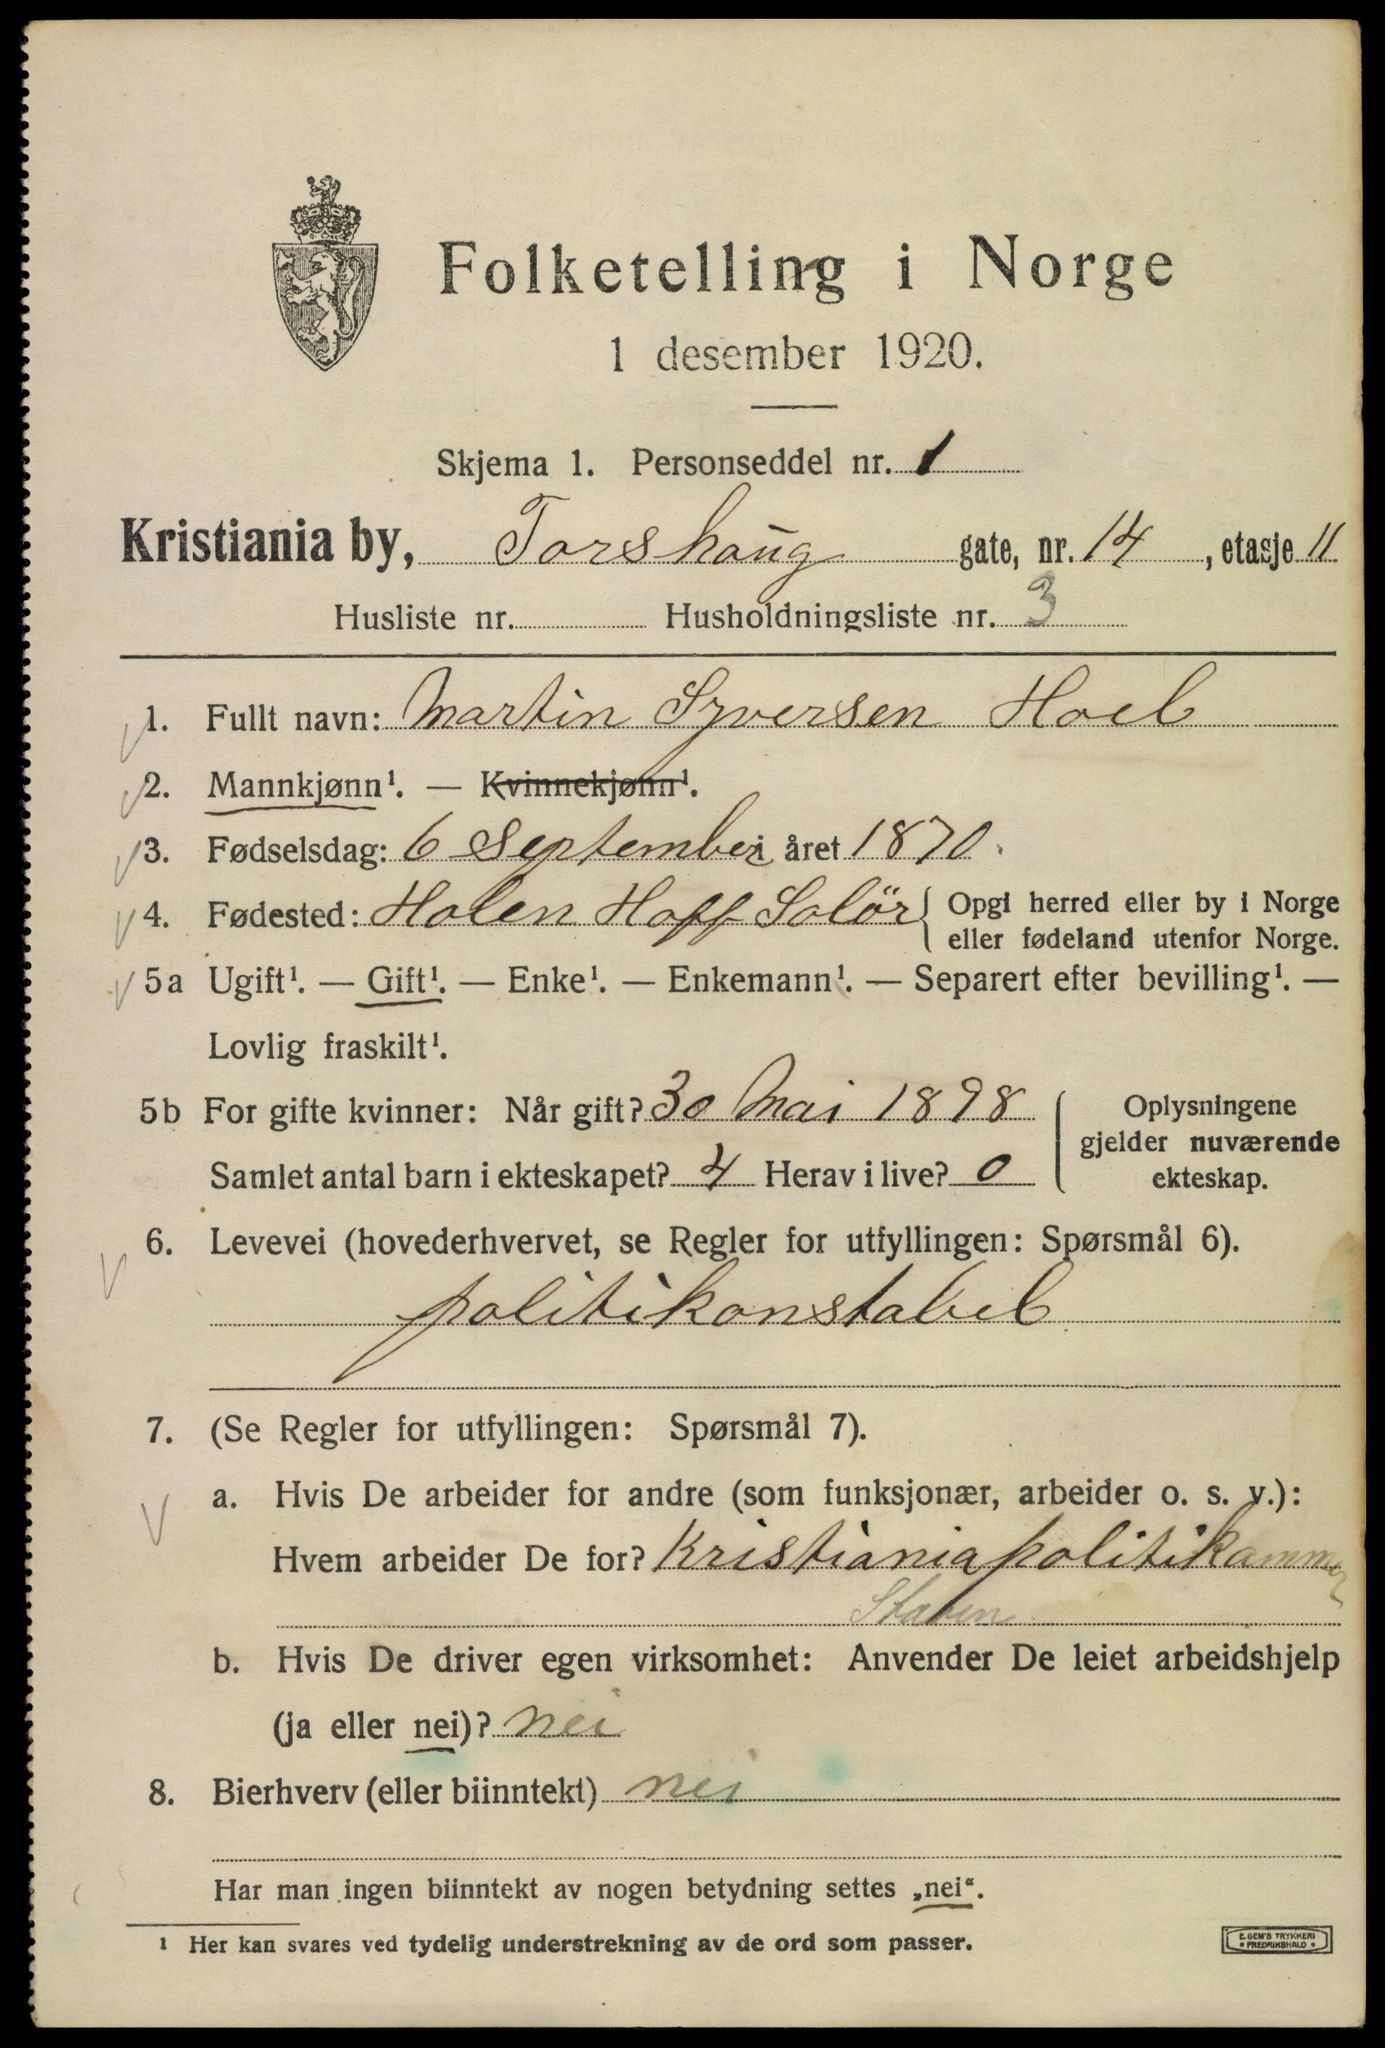 Folketelling i Norge
1 desember 1920.
Skjema 1. Personseddel nr. 1
Kristiania by, Torshaug gate, nr. 14, etasje 11
Husliste nr. Husholdningsliste nr. 3
1. Fullt navn: Martin Syversen Hoel
2. Mannkjønn¹. — Kvinnekjønn¹.
3. Fødselsdag: 6 September i året 1870.
4. Fødested: Holen Hoff Solör { Opgi herred eller by i Norge
eller fødeland utenfor Norge.
5a Ugift¹. — Gift¹. — Enke¹. — Enkemann¹. — Separert efter bevilling¹. —
Lovlig fraskilt¹.
5b For gifte kvinner: Når gift? 30 Mai 1898
Samlet antal barn i ekteskapet? 4 Herav i live? 0
Oplysningene
gjelder nuværende
ekteskap.
6. Levevei (hovederhvervet, se Regler for utfyllingen: Spørsmål 6).
politikonstabel
7. (Se Regler for utfyllingen: Spørsmål 7).
a. Hvis De arbeider for andre (som funksjonær, arbeider o. s. v.):
Hvem arbeider De for? Kristiania politikammer
Staben
b. Hvis De driver egen virksomhet: Anvender De leiet arbeidshjelp
(ja eller nei)? nei
8. Bierhverv (eller biinntekt) nei
Har man ingen biinntekt av nogen betydning settes „nei“.
¹ Her kan svares ved tydelig understrekning av de ord som passer.
E. SEM'S TRYKKERI
• FREDRIKSHALD •